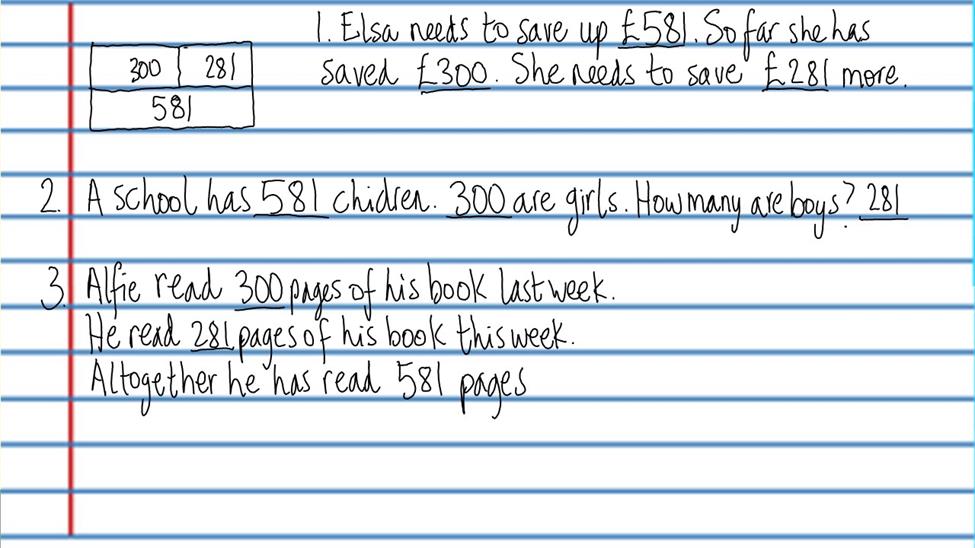 1. Elsa needs to save up £581. So far she has
saved £300. She needs to save £281 more.
300 281
581
2. A school has 581 chidren. 300 are girls. How many are boys? 281
3. Alfie read 300 pages of his book last week.
He read 281 pages of his book this week.
Altogether he has read 581 pages